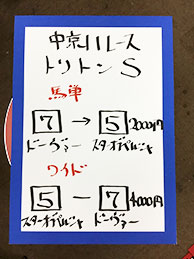 中京11レース
トリトンS
馬単
7 → 5 2000円
ドーヴァー スターオブペルシャ
ワイド
5 ー 7 4000円
スターオブペルシャ ドーヴァー